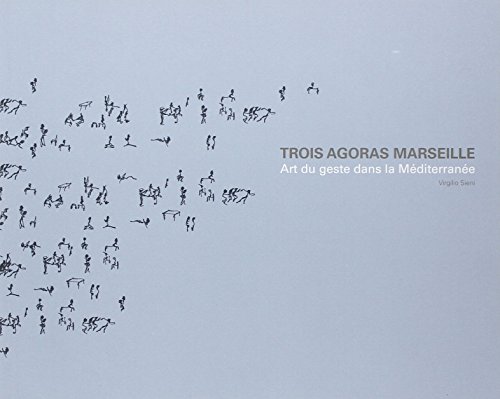 TROIS AGORAS MARSEILLE
Art du geste dans la Méditerranée
Virgilio Sieni